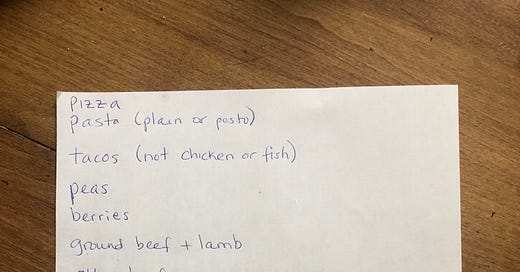 pizza
pasta (plain or posto)
tacos (not chicken or fish)
peas
berries
ground beef + lamb